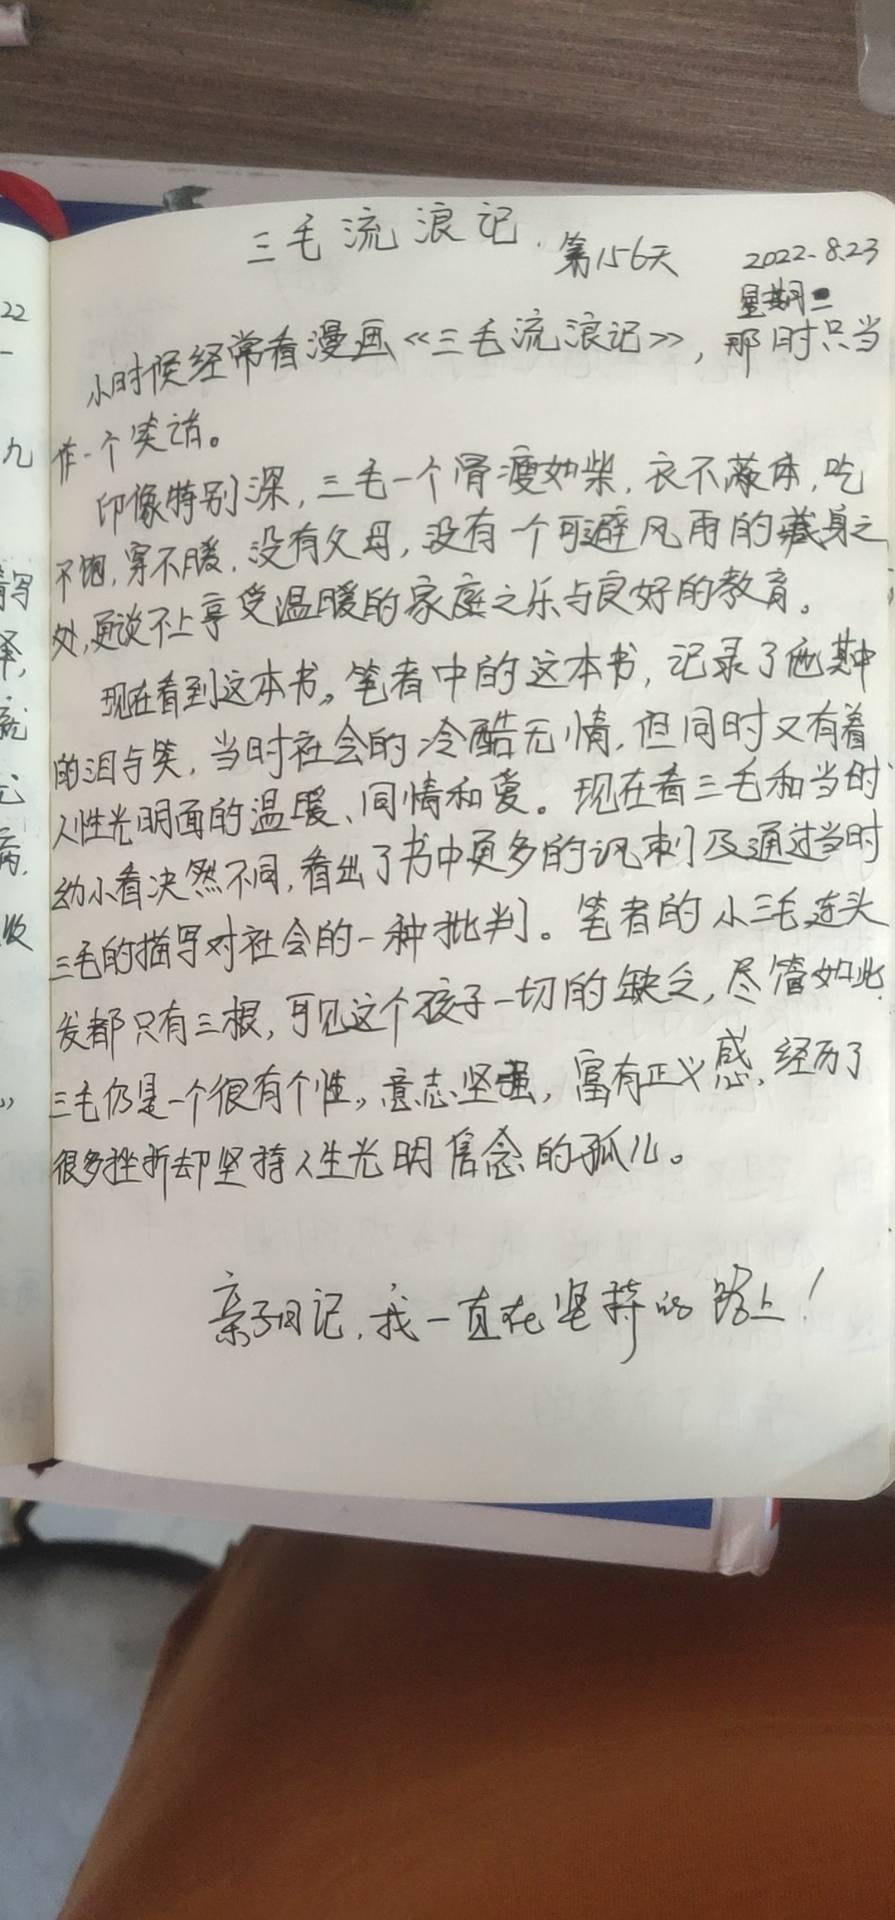 三毛流浪记.
第156天
2022.8.23
星期二
小时候经常看漫画《三毛流浪记》，那时只当
作一个笑话。
印像特别深，三毛一个骨瘦如柴，衣不蔽体，吃
不饱，穿不暖，没有父母，没有一个可避风雨的藏身之
处，更谈不上享受温暖的家庭之乐与良好的教育。
现在看到这本书，笔者中的这本书，记录了他其中
的泪与笑，当时社会的冷酷无情，但同时又有着
人性光明面的温暖、同情和爱。现在看三毛和当时
幼小看决然不同，看出了书中更多的讽刺及通过当时
三毛的描写对社会的一种批判。笔者的小三毛连头
发都只有三根，可见这个孩子一切的缺乏，尽管如此，
三毛仍是一个很有个性，意志坚强，富有正义感，经历了
很多挫折却坚持人生光明信念的孤儿。
亲子日记，我一直在坚持的路上！
22
一
九
写
择，
就
病，
收